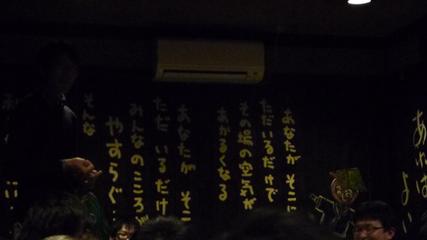 あなたが そこに
ただ いるだけで
その場の空気が
あかるくなる
あなたが そこに
ただ いるだけ
みんなのこころ
やすらぐ
そんな